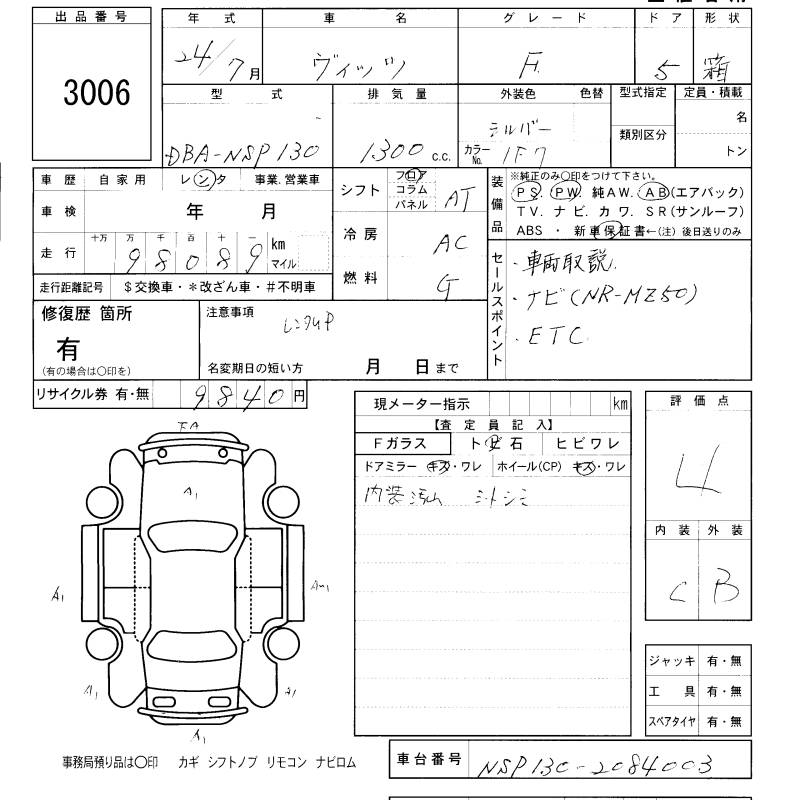 出品番号
3006
年式 車名 グレード ドア 形状
24/7月 ヴィッツ F 5 箱
型式 排気量 外装色 色替 型式指定 定員・積載
DBA-NSP130 1300 c.c. シルバー 類別区分 名
カラーNo. 1F7 トン
車歴 自家用 レンタ 事業.営業車
車検 年 月
走行 十万 万 千 百 十 一 km マイル
98089
走行距離記号 $交換車・*改ざん車・#不明車
シフト フロア コラム パネル AT
冷房 AC
燃料 G
装備品 ※純正のみ○印をつけて下さい。
PS. PW. 純AW. AB(エアバック)
TV. ナビ. カワ. SR(サンルーフ)
ABS ・ 新車保証書←(注) 後日送りのみ
セールスポイント
・車両取説.
・ナビ(NR-MZ50)
・ETC
修復歴 箇所
有
(有の場合は○印を)
注意事項
レンタUP
名変期日の短い方 月 日まで
リサイクル券 有・無 9840円
現メーター指示 km
【査定員記入】
Fガラス トビ石 ヒビワレ
ドアミラー キズ・ワレ ホイール(CP) キズ・ワレ
内装汚れ シートシミ
評価点
4
内装 外装
C B
ジャッキ 有・無
工具 有・無
スペアタイヤ 有・無
A1
A1
A1
A1
A1
事務局預り品は○印 カギ シフトノブ リモコン ナビロム
車台番号 NSP130-2084003